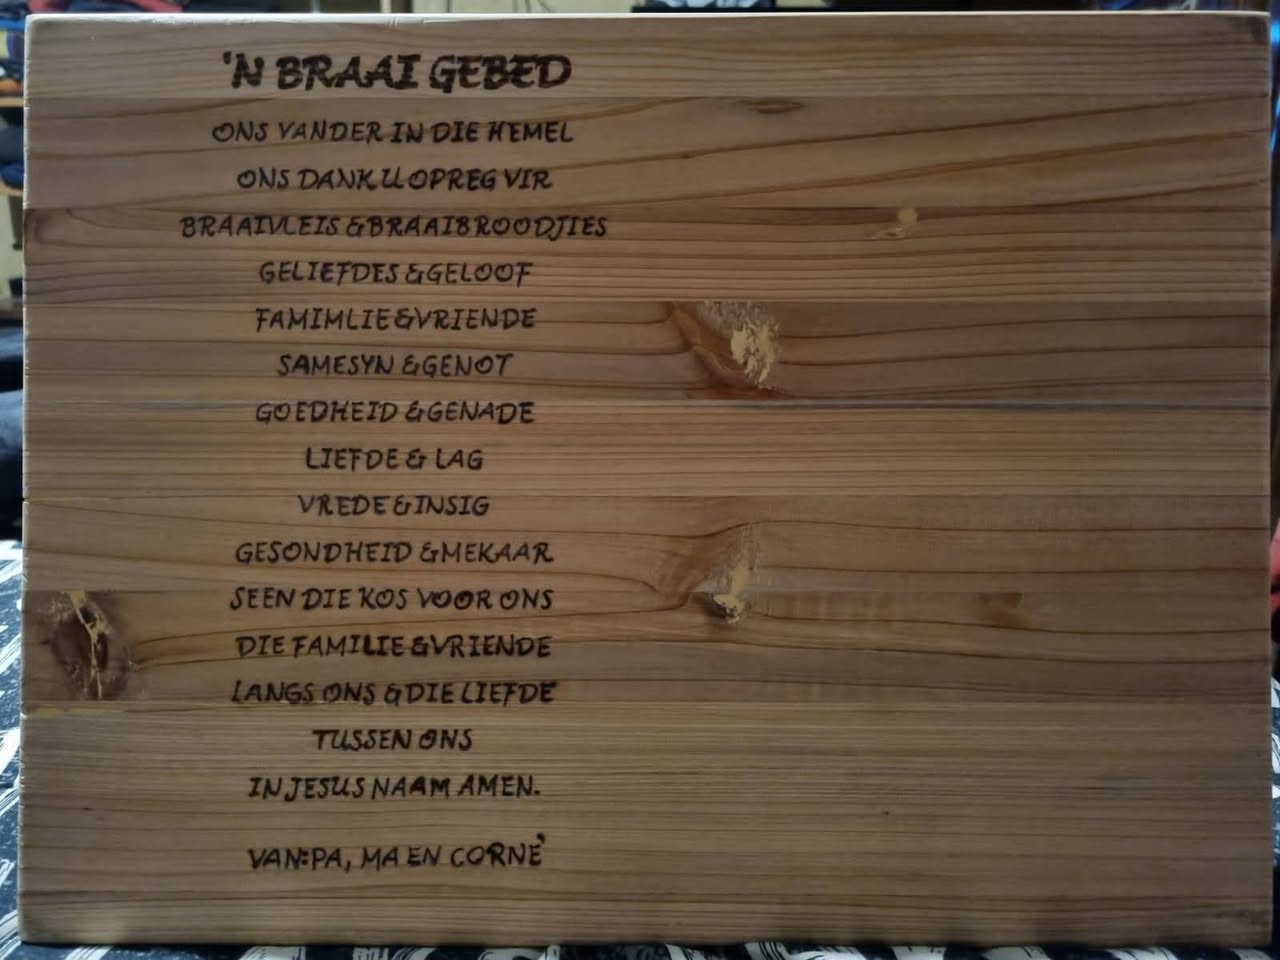 'N BRAAI GEBED
ONS VANDER IN DIE HEMEL
ONS DANK U OPREG VIR
BRAAIVLEIS & BRAAIBROODJIES
GELIEFDES & GELOOF
FAMIMLIE & VRIENDE
SAMESYN & GENOT
GOEDHEID & GENADE
LIEFDE & LAG
VREDE & INSIG
GESONDHEID & MEKAAR
SEEN DIE KOS VOOR ONS
DIE FAMILIE & VRIENDE
LANGS ONS & DIE LIEFDE
TUSSEN ONS
IN JESUS NAAM AMEN.
VAN:PA, MA EN CORNE'